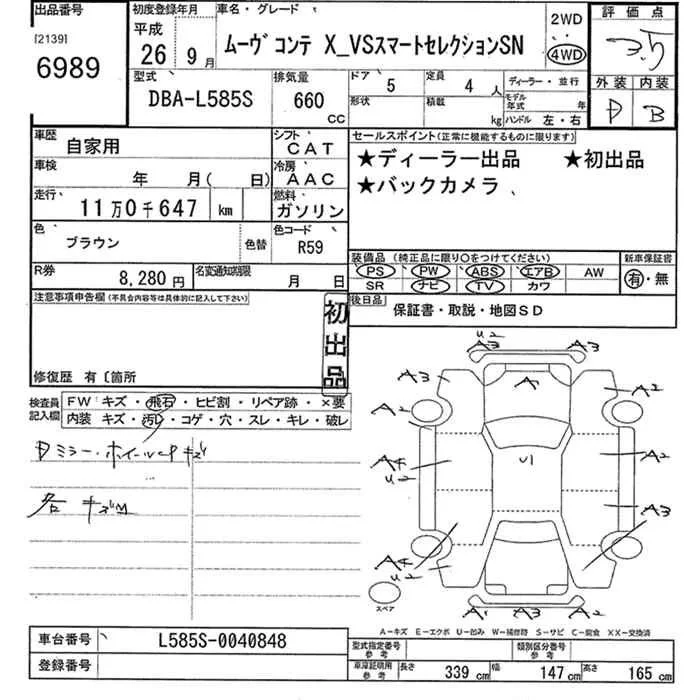 出品番号
[2139]
6989
初度登録年月
平成
26年 9月
車名・グレード
ムーヴ コンテ X_VSスマートセレクションSN
2WD
4WD
評価点
3.5
外装 内装
D B
型式
DBA-L585S
排気量
660 CC
ドア 5
定員 4人
形状
積載 kg
ディーラー・並行
モデル年式 年
ハンドル 左・右
車歴
自家用
シフト
CAT
車検
年 月( 日)
冷房
AAC
走行
11万0千647 km
燃料
ガソリン
色
ブラウン
色替
色コード
R59
R券
8,280円
名変通知期限
月 日
セールスポイント(正常に機能するものに限ります)
★ディーラー出品 ★初出品
★バックカメラ
装備品 (純正品に限り○をつけてください)
PS PW ABS エアB AW
SR ナビ TV カワ
新車保証書
有・無
後日品
保証書・取説・地図SD
注意事項申告欄(不具合内容等は具体的に記入して下さい)
初出品
修復歴 有〔箇所
検査員記入欄
FW キズ・飛石・ヒビ割・リペア跡・×要
内装 キズ・汚れ・コゲ・穴・スレ・キレ・破レ
Dミラー・ホイールCPキズ
各 キズM
U2
A3 A3
A3 A1 A2
A2
A4 U2 U1 A2
A3
A4 U2
A1 A2
スペア
A-キズ E-エクボ U-凹み W-補修跡 S-サビ C-腐食 XX-交換済
車台番号
L585S-0040848
登録番号
型式指定番号 参考
類別区分番号 参考
車庫証明用 参考
長さ 339 cm
幅 147 cm
高さ 165 cm